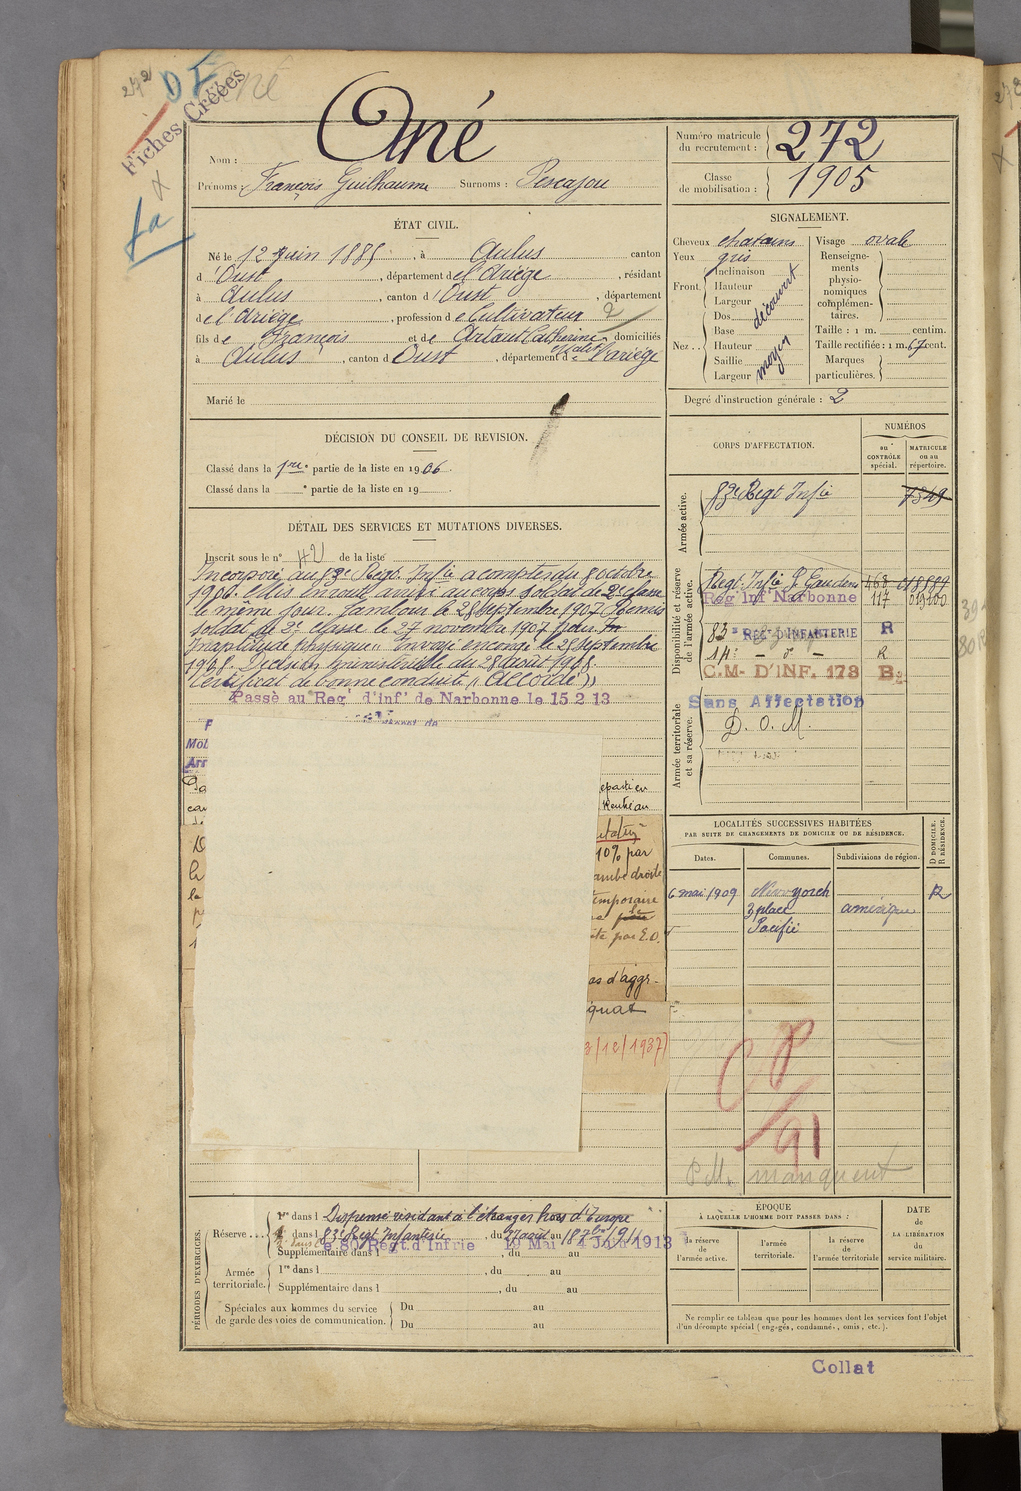 272
Fiches Créées
fa
Nom : Ané
Prénoms : François Guilhaume Surnoms : Pescajou
Numéro matricule du recrutement : 272
Classe de mobilisation : 1905
ÉTAT CIVIL.
Né le 12 Juin 1885, à Aulus canton
d'Oust, département de l'Ariège, résidant
à Aulus, canton d'Oust, département
de l'Ariège, profession de Cultivateur 2
fils de François et de Artaut Catherine domiciliés
à Aulus, canton d'Oust, département de l'Ariège
Marié le
SIGNALEMENT.
Cheveux chatains Visage ovale
Yeux gris
Front. Inclinaison Hauteur Largeur découvert
Nez.. Dos Base Hauteur Saillie Largeur moyen
Renseignements physionomiques complémentaires.
Taille : 1 m. centim.
Taille rectifiée : 1 m. 67 cent.
Marques particulières.
Degré d'instruction générale : 2
DÉCISION DU CONSEIL DE REVISION.
Classé dans la 1re partie de la liste en 1906.
Classé dans la e partie de la liste en 19
DÉTAIL DES SERVICES ET MUTATIONS DIVERSES.
Inscrit sous le n° 42 de la liste
Incorporé au 83e Régt. Infie à compter du 8 octobre
1906. Mis en route, arrivé au corps soldat de 2e classe
le même jour. Tambour le 28 septembre 1907. Remis
soldat de 2e classe le 27 novembre 1907 pour
Inaptitude physique. Envoyé en congé le 25 septembre
1908. Décision ministérielle du 28 août 1908.
Certificat de bonne conduite "Accordé"
Passé au Reg' d'inf' de Narbonne le 15 2 13
Mob
Arr
eparti en
10% par
jambe droite
temporaire
ité par E.O.
as d'aggr-
quat
3/12/1937)
CORPS D'AFFECTATION.
NUMÉROS
au CONTRÔLE spécial.
MATRICULE ou au répertoire.
Armée active.
83e Régt Infie 7349
Disponibilité et réserve de l'armée active.
Régt. Infie St Gaudens 463 018894
Reg' Inf' Narbonne 117 013100
83e REG' D'INFANTERIE R
14e - d° - R
C.M- D'INF. 173 B2
Armée territoriale et sa réserve.
Sans Affectation
D. O. M.
LOCALITÉS SUCCESSIVES HABITÉES
PAR SUITE DE CHANGEMENTS DE DOMICILE OU DE RÉSIDENCE.
Dates. Communes. Subdivisions de région. D DOMICILE. R RÉSIDENCE.
6 mai 1909 New yorck R
3 place amérique
Pacific
CP/91
P.M. manquent
PÉRIODES D'EXERCICES.
Réserve... 1re dans l Dispensé résidant à l'étranger hors d'Europe
2e dans l 83e Régt Infanterie, du 27 août au 18 7bre 1911
e 80 Régt. d'Infrie 19 Mai 4 Juin 1913
Supplémentaire dans l , du au
Armée territoriale. 1re dans l , du au
Supplémentaire dans l , du au
Spéciales aux hommes du service de garde des voies de communication. Du au
Du au
ÉPOQUE
À LAQUELLE L'HOMME DOIT PASSER DANS :
la réserve de l'armée active.
l'armée territoriale.
la réserve de l'armée territoriale
DATE de LA LIBÉRATION du service militaire.
Ne remplir ce tableau que pour les hommes dont les services font l'objet
d'un décompte spécial (engagés, condamnés, omis, etc.).
Collat